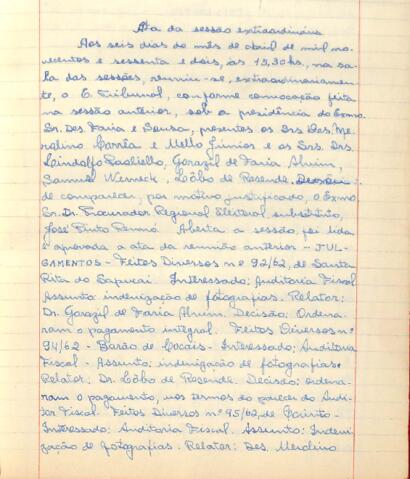 Ata da sessão extraordinária
Aos seis dias do mês de abril de mil no-
vecentos e sessenta e dois, às 13,30hs, na sa-
la das sessões, reuniu-se, extraordinariamen-
te, o E. Tribunal, conforme convocação feita
na sessão anterior, sob a presidência do Exmo.
Sr. Des. Faria e Sousa, presentes os Srs. Des. Me-
rolino Corrêa e Mello Júnior e os Srs. Drs.
Lindolfo Paoliello, Gorazil de Faria Alvim,
Samuel Werneck, Lôbo de Resende. Deixou
de comparecer, por motivo justificado, o Exmo.
Sr. Dr. Procurador Regional Eleitoral, substituto,
José Pinto Aberta a sessão, foi lida
e aprovada a ata da reunião anterior - JUL-
GAMENTOS - Feitos Diversos nº 92/62, de Santa
Rita do Sapucaí Interessado: Auditoria Fiscal
Assunto: indenização de fotografias. Relator:
Dr. Gorazil de Faria Alvim. Decisão: Ordena-
ram o pagamento integral. Feitos Diversos nº
94/62 - Barão de Cocais - Interessado: Auditoria
Fiscal - Assunto: indenização de fotografias.
Relator: Dr. Lôbo de Resende. Decisão: ordena-
ram o pagamento, nos termos do parecer do Audi-
tor Fiscal. Feitos Diversos nº 95/62, de Corinto -
Interessado: Auditoria Fiscal. Assunto: Indeni-
zação de fotografias. Relator: Des. Merolino